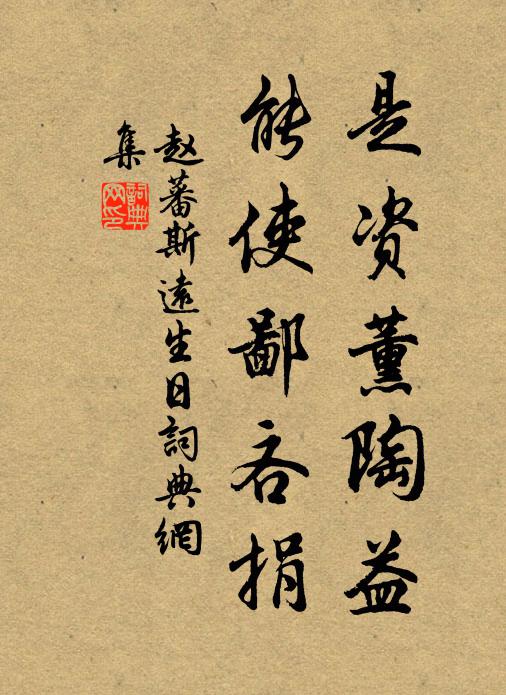 是资薰陶益
能使鄙吝捐
赵蕃斯遠生日詞典網
集
詞典網印